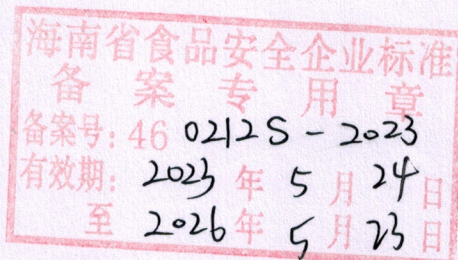 海南省食品安全企业标准
备案专用章
备案号：46 0212S-2023
有效期：2023年5月24日
至2026年5月23日